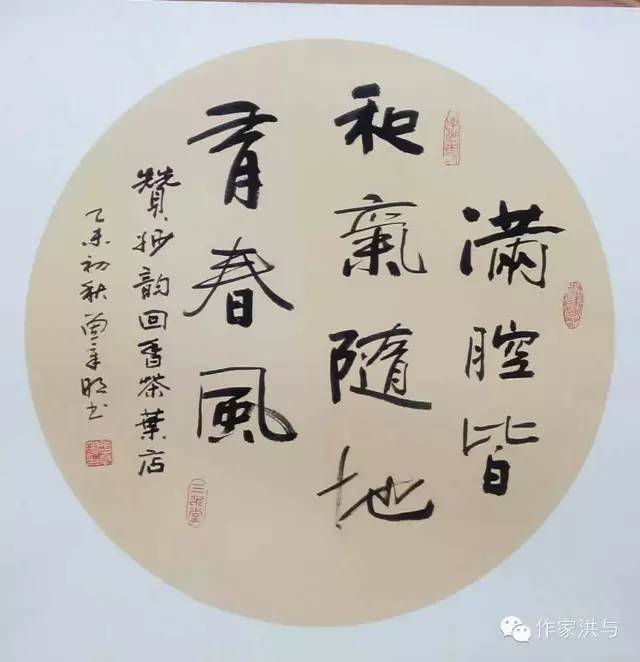 滿腔皆
和氣隨地
有春風
贊妙韵回香茶葉店
乙未初秋
作家洪与